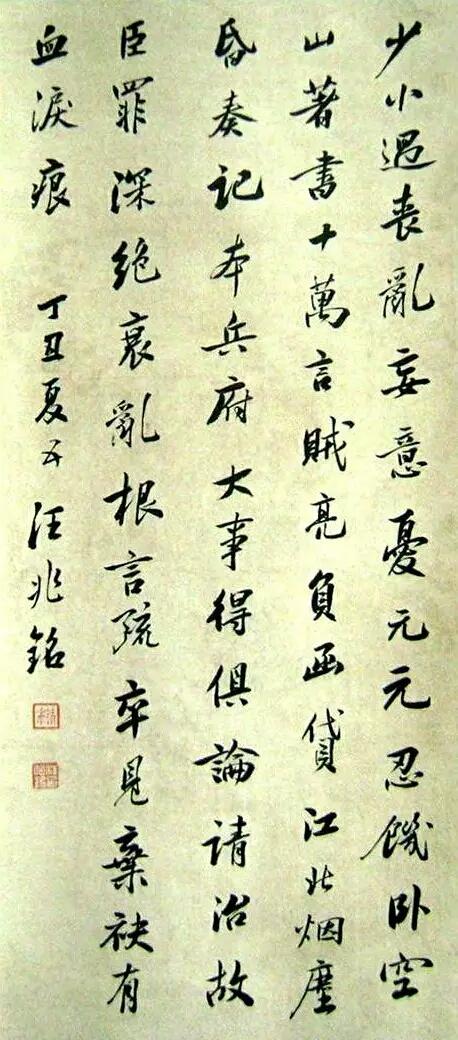 少小遇喪亂妄意憂元元忍饑卧空
山著書十萬言賊亮負函貸江北烟塵
昏奏記本兵府大事得俱論請治故
臣罪深絶衰亂根言疏卒見棄袂有
血淚痕
丁丑夏五汪兆銘